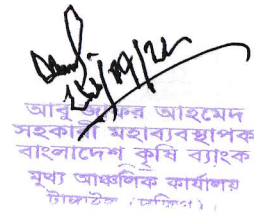 আবু জাফর আহমেদ
সহকারী মহাব্যবস্থাপক
বাংলাদেশ কৃষি ব্যাংক
মুখ্য আঞ্চলিক কার্যালয়
টাঙ্গাইল